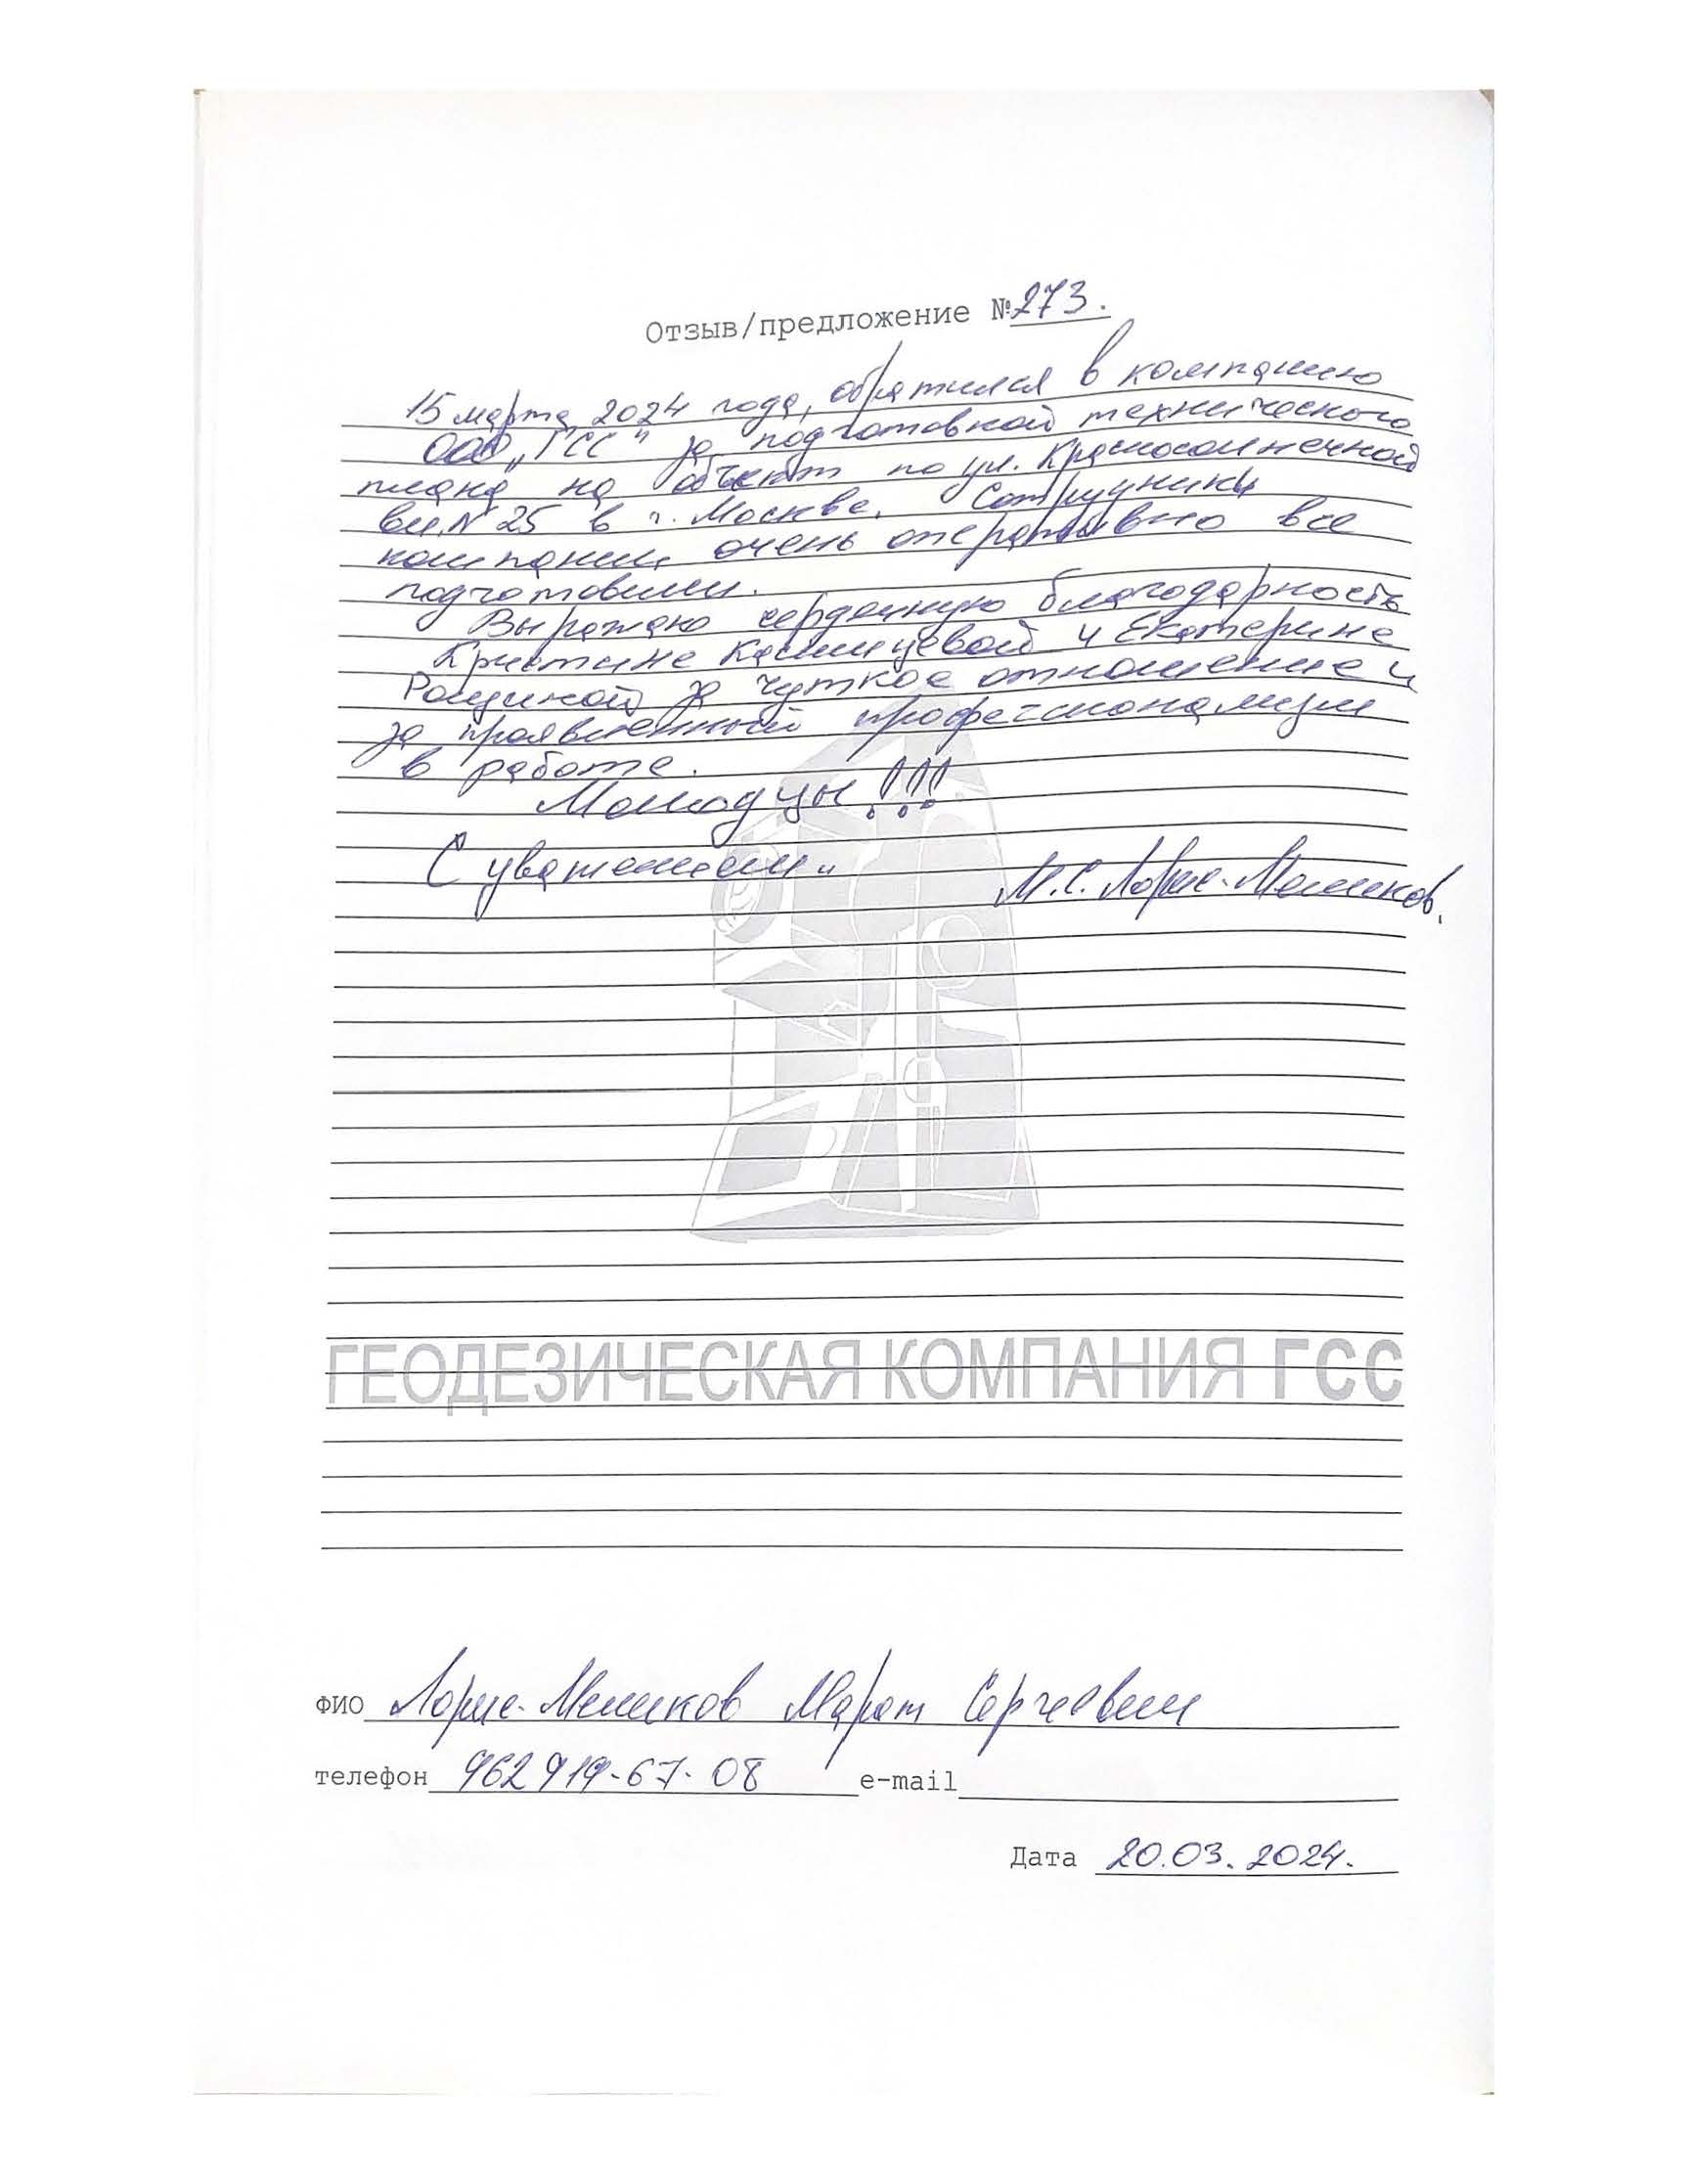 Отзыв/предложение №273.
15 марта 2024 года, обратился в компанию
ООО „ГСС" за подготовкой технического
плана на объект по ул. Красносолнечной
вл. N 25 в г. Москве. Сотрудники
компании очень оперативно все
подготовили.
Выражаю сердечную благодарность
Кристине Казинцевой и Екатерине
Рощиной за чуткое отношение и
за проявленный профессионализм
в работе.
Молодцы!!!
С уважением
М.С. Лорис-Меликов.
ГЕОДЕЗИЧЕСКАЯ КОМПАНИЯ ГСС
ФИО Лорис-Меликов Марат Сергеевич
телефон 962 919-67-08 e-mail
Дата 20.03.2024.